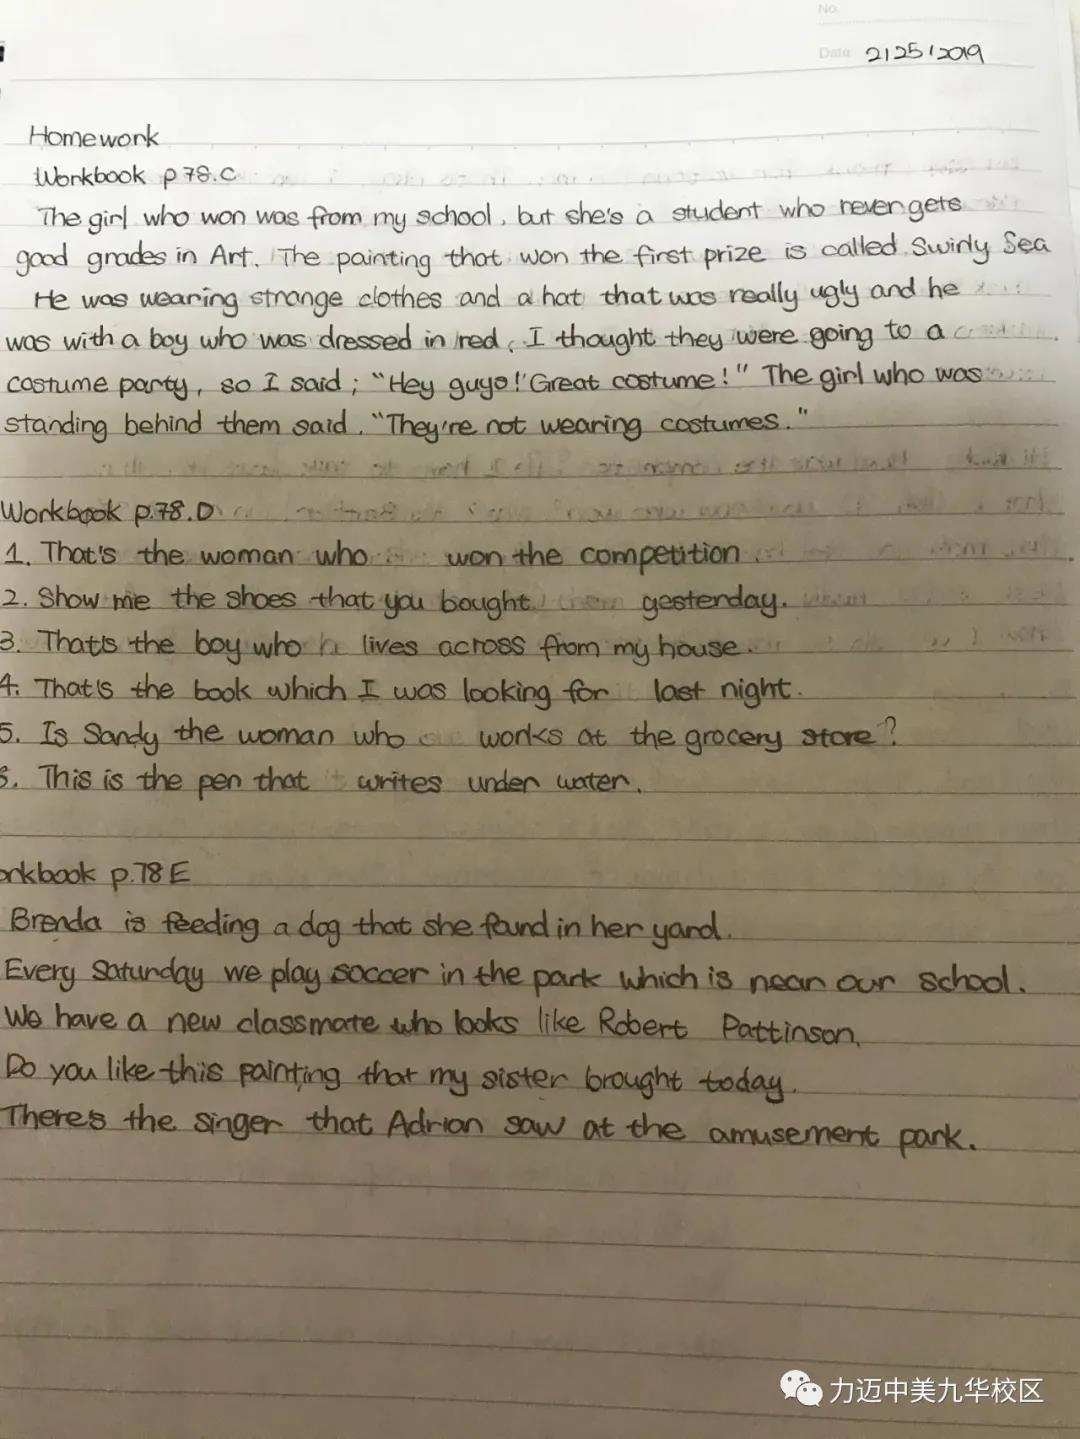 No.
Date 2/25/2019
Homework
Workbook p 78.C
The girl who won was from my school, but she's a student who never gets
good grades in Art. The painting that won the first prize is called Swirly Sea
He was wearing strange clothes and a hat that was really ugly and he
was with a boy who was dressed in red. I thought they were going to a
costume party, so I said; "Hey guys! Great costume!" The girl who was
standing behind them said. "They're not wearing costumes."
Workbook p.78.D
1. That's the woman who won the competition
2. Show me the shoes that you bought yesterday.
3. That's the boy who lives across from my house.
4. That's the book which I was looking for last night.
5. Is Sandy the woman who works at the grocery store?
6. This is the pen that writes under water.
orkbook p.78 E
Brenda is feeding a dog that she found in her yard.
Every Saturday we play soccer in the park which is near our school.
We have a new classmate who looks like Robert Pattinson.
Do you like this painting that my sister brought today.
There's the singer that Adrian saw at the amusement park.
力迈中美九华校区